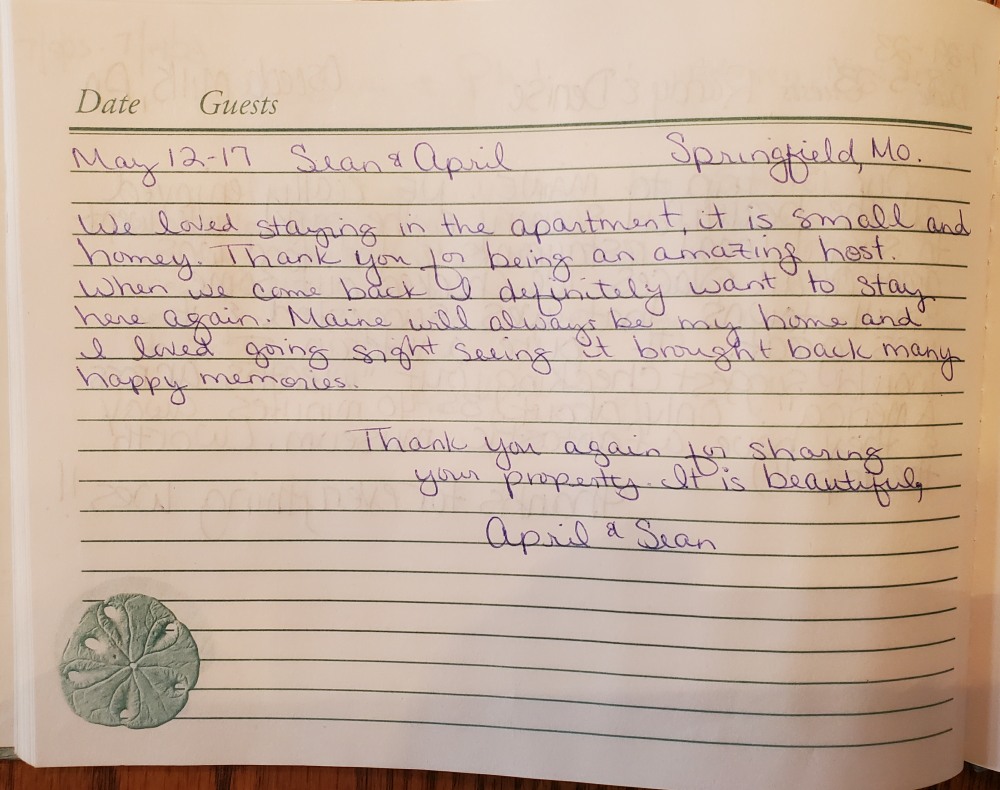 Date Guests
May 12-17 Sean & April Springfield, Mo.
We loved staying in the apartment, it is small and
homey. Thank you for being an amazing host.
When we come back I definitely want to stay
here again. Maine will always be my home and
I loved going sight seeing it brought back many
happy memories.
Thank you again for sharing
your property. It is beautiful,
April & Sean